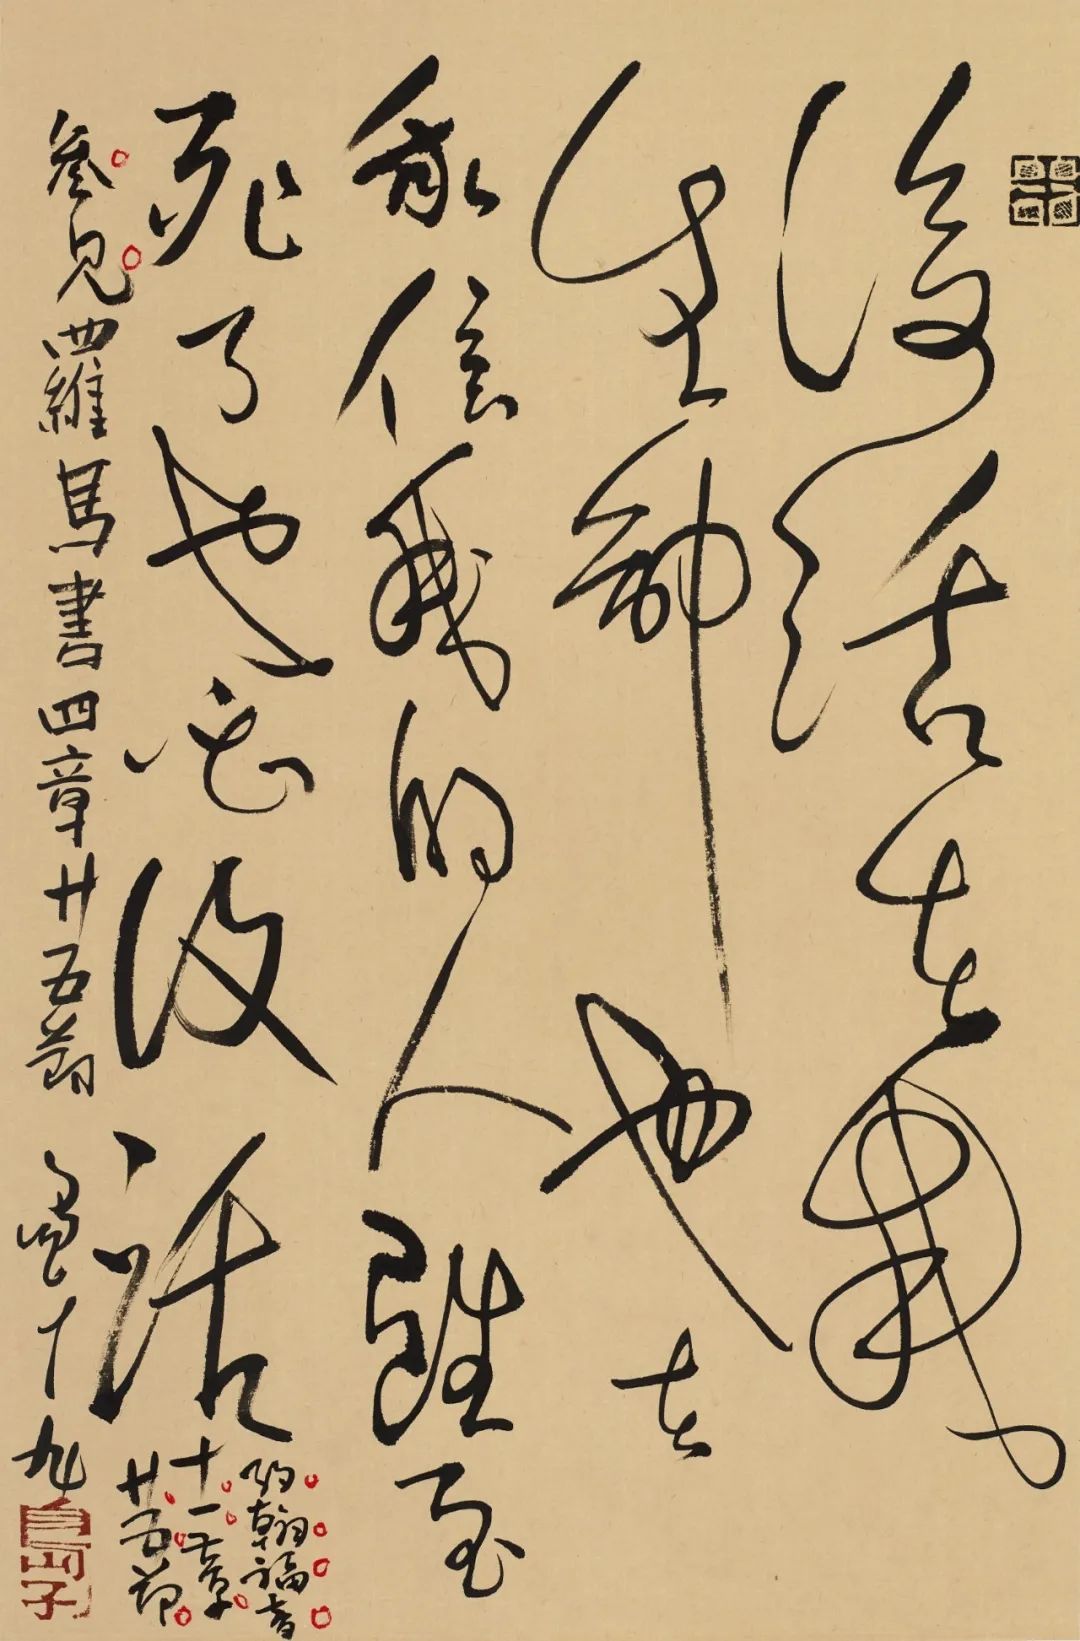 復活在我
生命也在
我信我的人雖至
死了也必復活
約翰福音
十一章
廿五節
參見羅馬書四章廿五節
十九